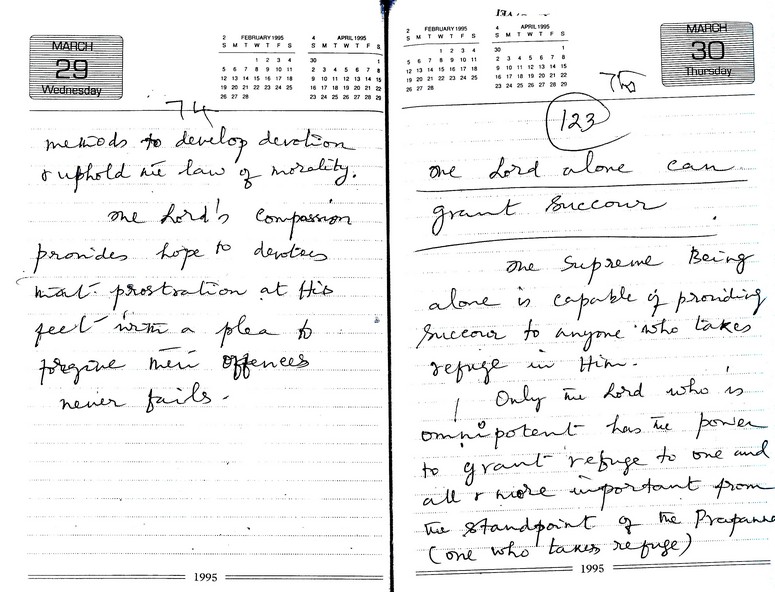 MARCH
29
Wednesday
2 FEBRUARY 1995
S M T W T F S
1 2 3 4
5 6 7 8 9 10 11
12 13 14 15 16 17 18
19 20 21 22 23 24 25
26 27 28
4 APRIL 1995
S M T W T F S
30 1
2 3 4 5 6 7 8
9 10 11 12 13 14 15
16 17 18 19 20 21 22
23 24 25 26 27 28 29
74
methods to develop devotion
& uphold the law of morality.
The Lord's compassion
provides hope to devotees
that prostration at His
feet with a plea to
forgive their offences
never fails.
1995
2 FEBRUARY 1995
S M T W T F S
1 2 3 4
5 6 7 8 9 10 11
12 13 14 15 16 17 18
19 20 21 22 23 24 25
26 27 28
4 APRIL 1995
S M T W T F S
30 1
2 3 4 5 6 7 8
9 10 11 12 13 14 15
16 17 18 19 20 21 22
23 24 25 26 27 28 29
MARCH
30
Thursday
123
The Lord alone can
grant Succour
The Supreme Being
alone is capable of providing
Succour to anyone who takes
refuge in Him.
Only the Lord who is
omnipotent has the power
to grant refuge to one and
all & more important from
the standpoint of the Prapanna
(one who takes refuge)
1995